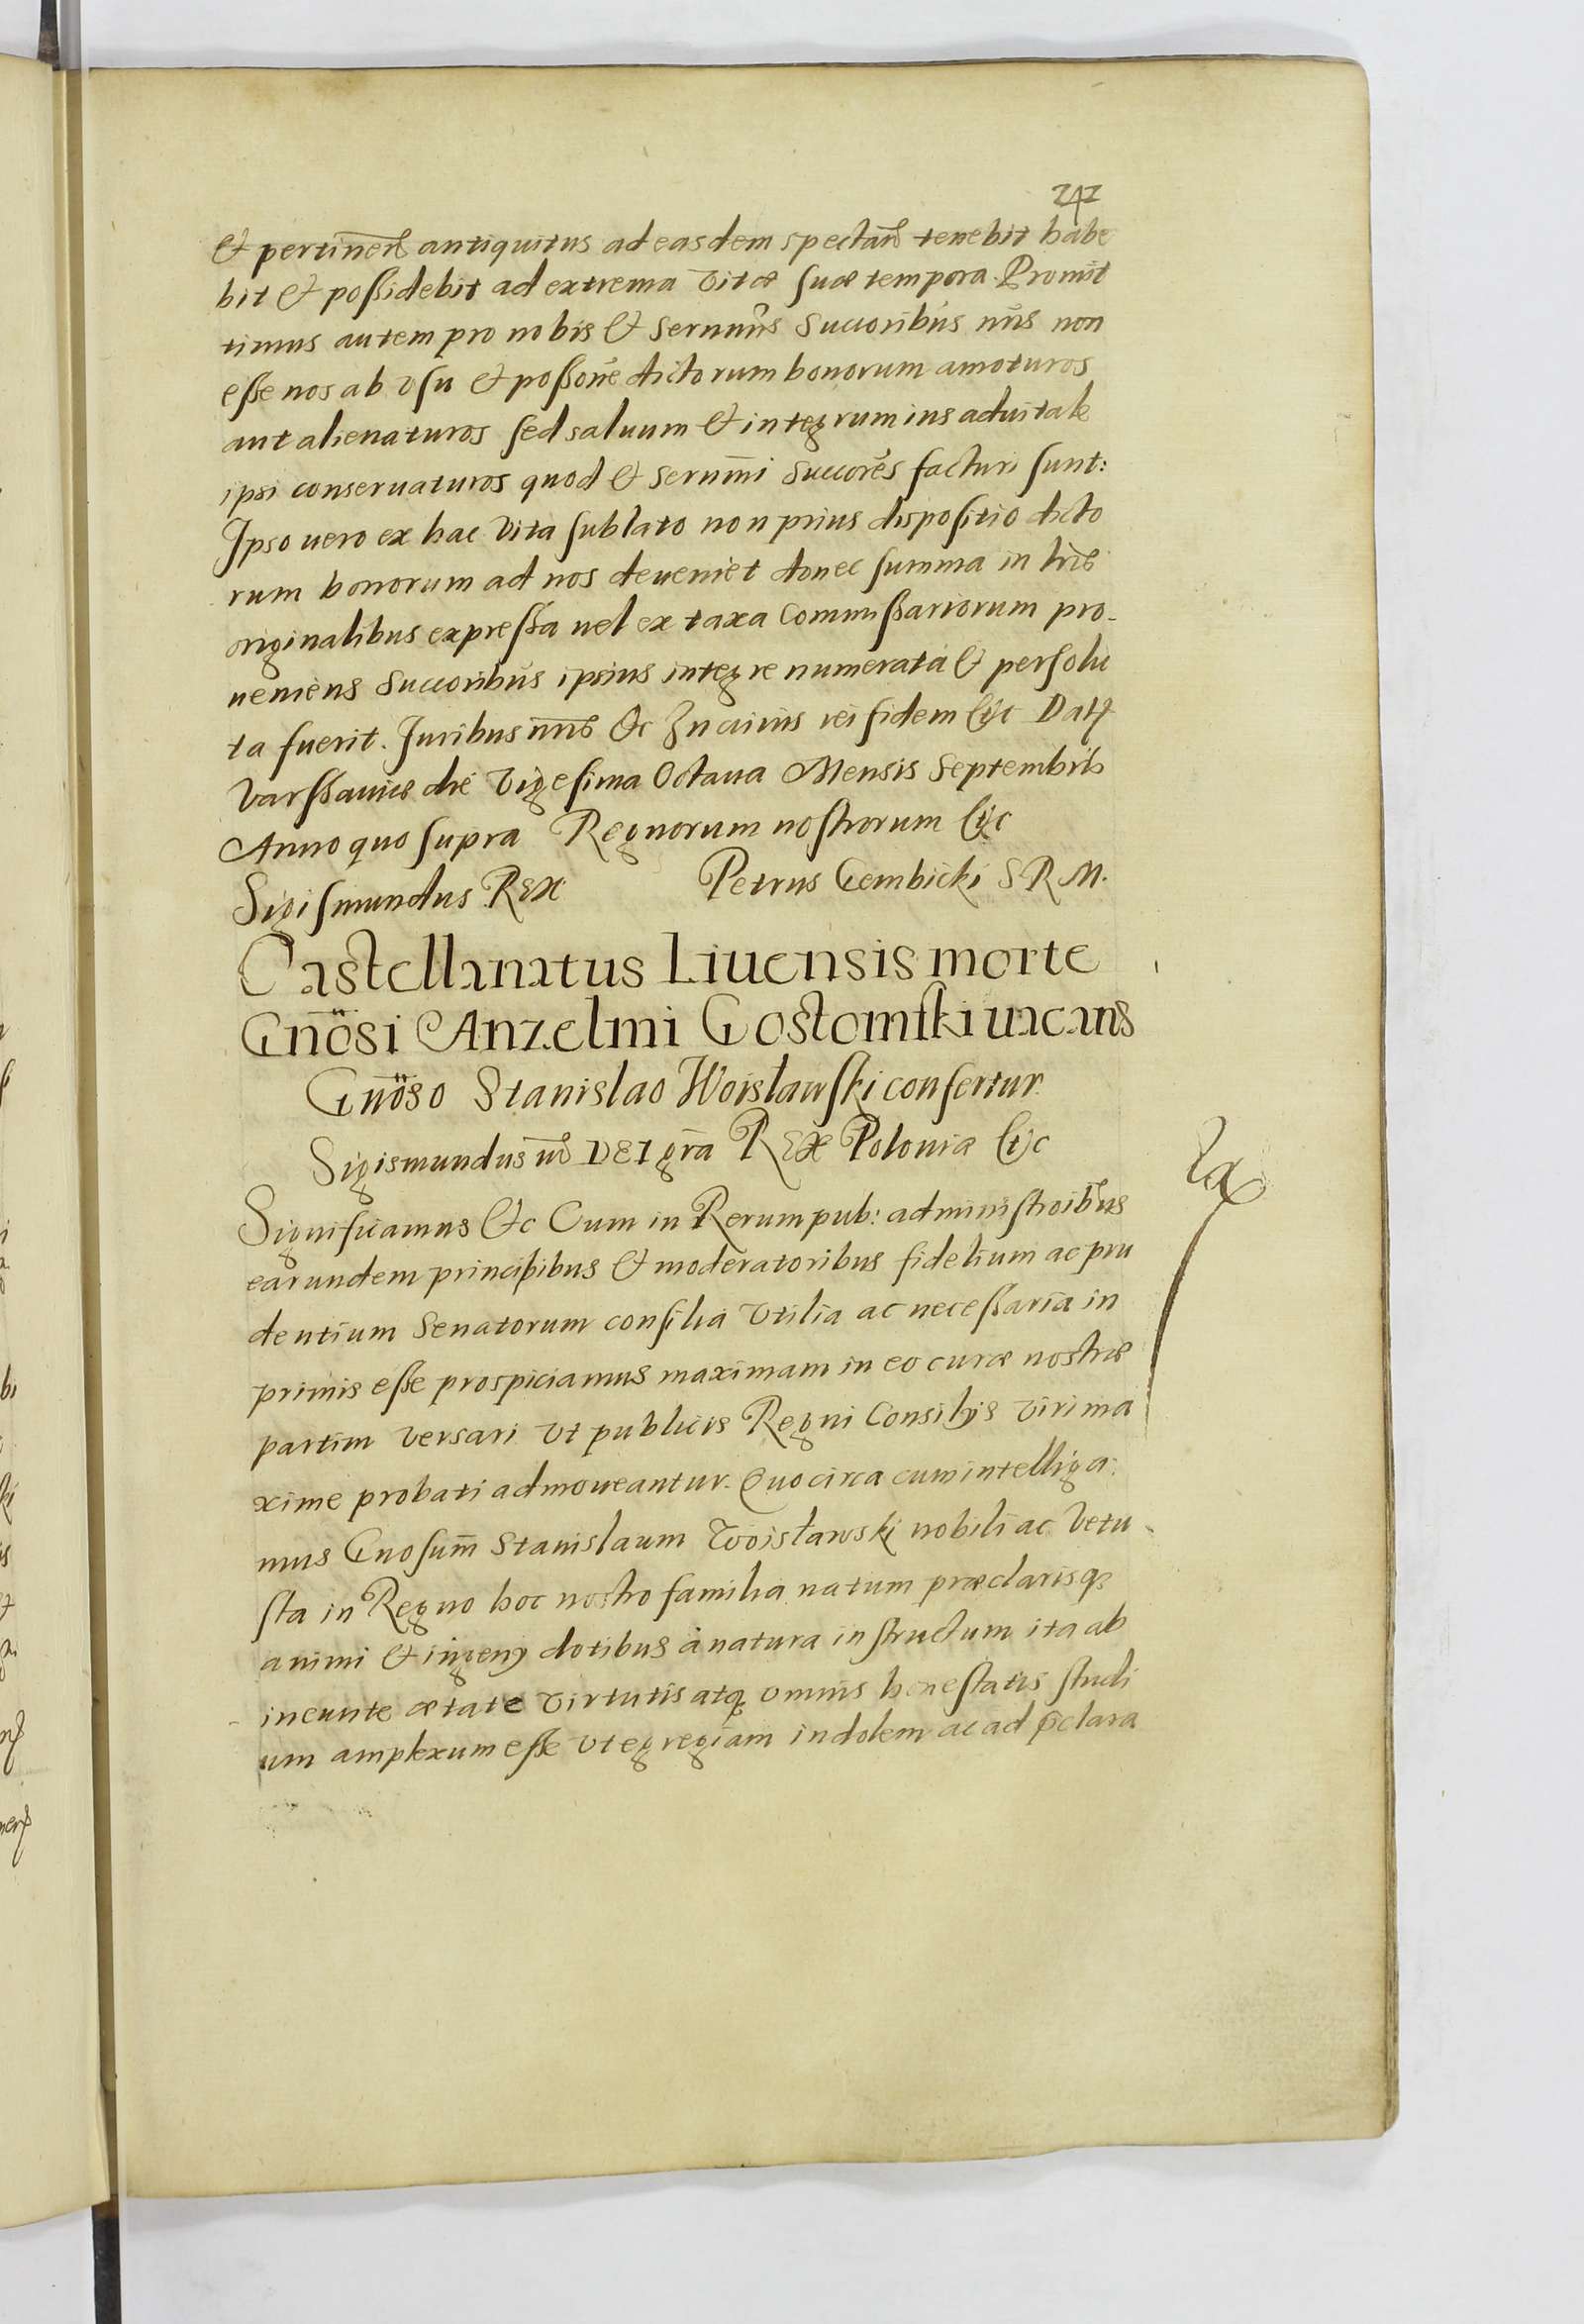 242
et pertinen antiquitus ad easdem spectan tenebit habe
bit et possidebit ad extrema vitæ suæ tempora. Promit
timus autem pro nobis et Sernmis Succoribus nris non
esse nos ab vsu et possone dictorum bonorum amoturos
aut alienaturos sed saluum et integrum ius aduitale
ipsi conseruaturos quod et Sernmi Succores facturi sunt:
Ipso uero ex hac vita sublato non prius dispositio dicto
rum bonorum ad nos deueniet donec summa in lris
originalibus expressa uel ex taxa Commissariorum pro-
ueniens Succoribus ipsius integre numerata et persolu
ta fuerit. Juribus nris &c In cuius rei fidem etc Datt
Varssauiæ die Vigesima Octaua Mensis Septembris
Anno quo supra Regnorum nostrorum etc
Sigismundus Rex Petrus Gembicki S R M.
Castellanatus Liuensis morte
Gnosi Anzelmi Gostomski uacans
Gnoso Stanislao Woisławski confertur.
Sigismundus iiis DEI gra REX Poloniæ etc
Significamus etc Cum in Rerumpub: administroibus
earundem principibus et moderatoribus fidelium ac pru
dentium Senatorum consilia vtilia ac necessaria in
primis esse prospiciamus maximam in eo curæ nostræ
partim versari vt publicis Regni Consilijs viri ma
xime probati admoueantur. Quocirca cum intelliga:
mus Gnosum Stanislaum Woisławski nobili ac vetu-
sta in Regno hoc nostro familia natum præclarisq
animi et ingenij dotibus à natura instructum ita ab
ineunte ætate virtutis atq omnis honestatis studi
um amplexum esse vt egregiam indolem ac ad pclara